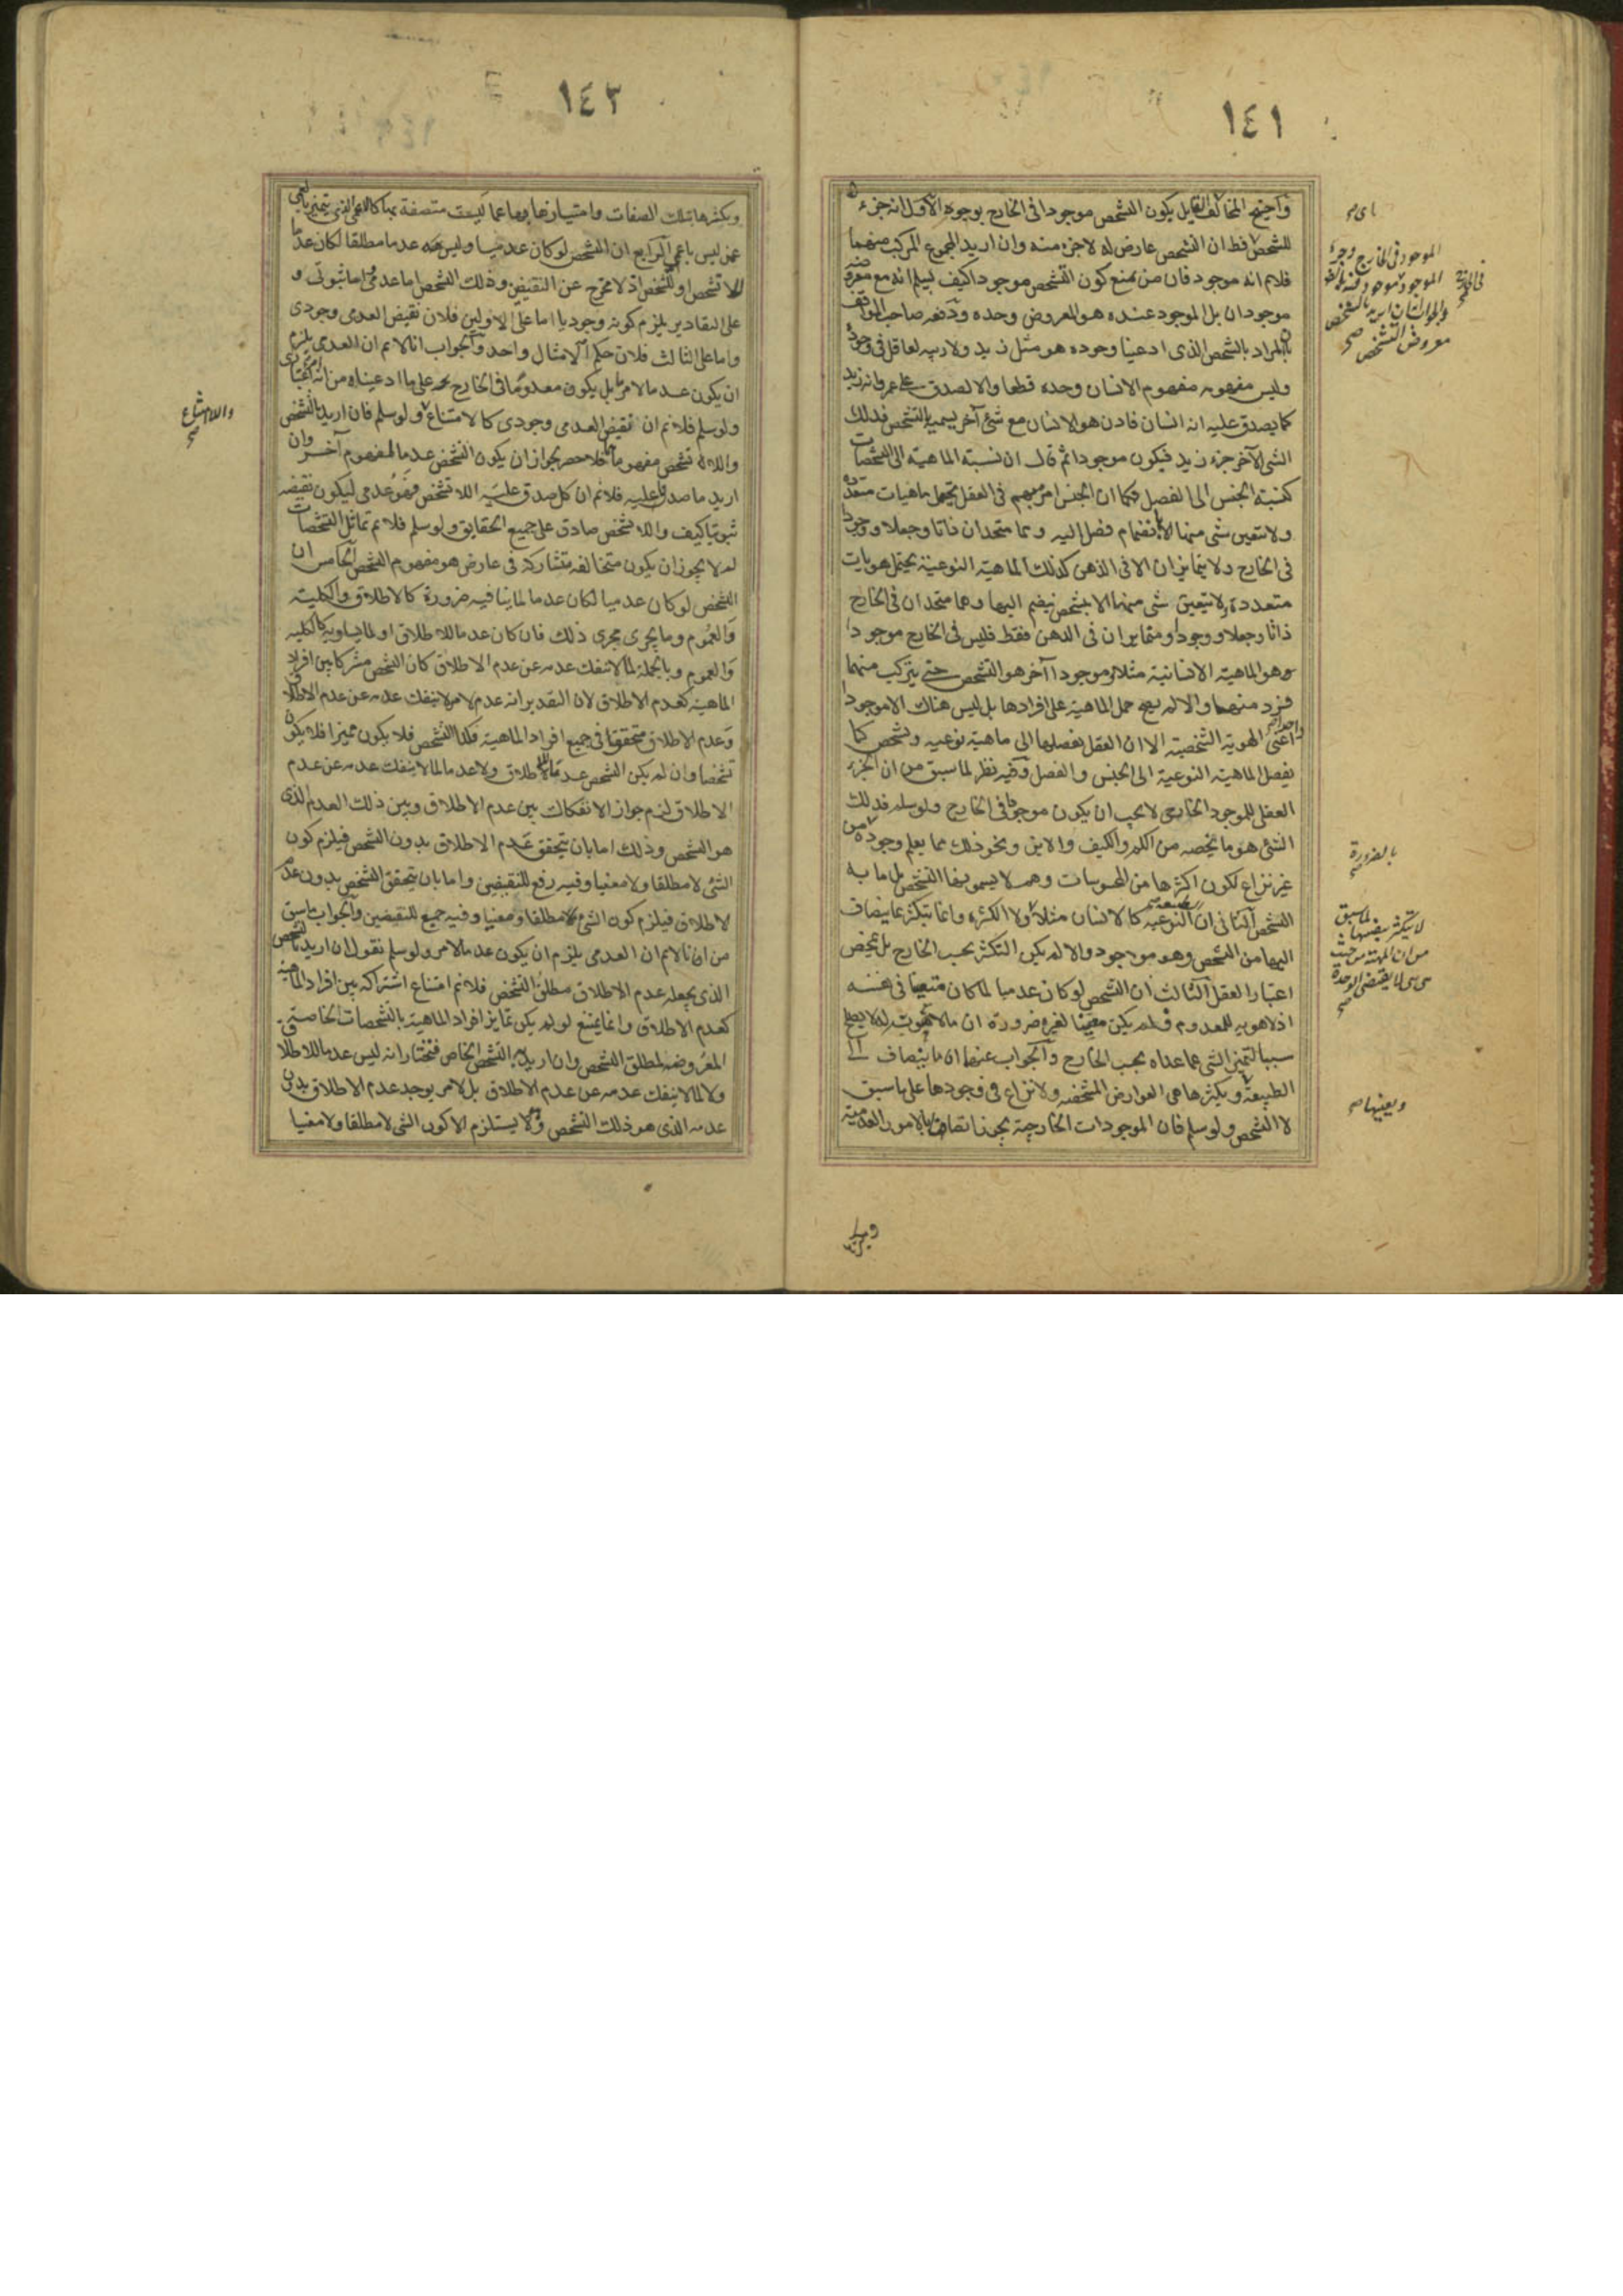 ١٤١
واحتج المخالف القايل بكون التشخص موجودا في الخارج بوجوه الاول انه جزء
للشخص فظ ان التشخص عارض له لاجزء منه وان اريد المجموع المركب منهما
فلانم انه موجود فان من يمنع كون التشخص موجودا كيف يسلم انه مع معروضه
موجودان بل الموجود عنده هو المعروض وحده ودفعه صاحب المواقف
بان المراد بالشخص الذي ادعينا وجوده هو مثل زيد ولا ريب لعاقل في وجوده
وليس مفهومه مفهوم الانسان وحده قطعا والا لصدق على عمرو انه زيد
كما يصدق عليه انه انسان فاذن هو الانسان مع شئ آخر نسميه التشخص فذلك
الشئ الآخر جزء زيد فيكون موجودا ثم قال ان نسبة الماهية الى المشخصات
كنسبة الجنس الى الفصل فكما ان الجنس امر مبهم في العقل يحتمل ماهيات متعددة
ولا تتعين شئ منها الا بانضمام فصل اليه وهما متحدان ذاتا وجعلا ووجودا
في الخارج ولا يتمايزان الا في الذهن كذلك الماهية النوعية يحتمل هويات
متعددة ولا تتعين شئ منها الا بتشخص ينضم اليها وهما متحدان في الخارج
ذاتا وجعلا ووجودا ومتمايزان في الذهن فقط فليس في الخارج موجودا
هو الماهية الانسانية مثلا وموجودا آخر هو التشخص حتى يتركب منهما
فرد منهما والا لم يصح حمل الماهية على افرادها بل ليس هناك الا موجود
واحد اعني الهوية الشخصية الا ان العقل يفصلها الى ماهية نوعيه وتشخص كما
يفصل الماهية النوعية الى الجنس والفصل وفيه نظر لما سبق من ان الجزء
العقلي للموجود الخارجي لا يجب ان يكون موجودا في الخارج ولو سلم فذلك
الشئ هو ما يخصه من الكم والكيف والاين ونحو ذلك مما يعلم وجوده من
غير نزاع لكون اكثرها من المحسوسات وهم لا يسمونها التشخص بل ما به
التشخص الثاني ان الطبيعة النوعيه كالانسان مثلا ولا الكثرة وانما يتكثر بما ينضاف
اليها من التشخص وهو موجود والا لم يكن التكثر بحسب الخارج بل بمحض
اعتبار العقل الثالث ان التشخص لو كان عدميا لما كان متعينا في نفسه
اذ لا هويه للمعدوم فلم يكن معينا لغيره ضرورة ان ما لا ثبوت له لا يصلح
سببا لتميز الشئ عما عداه بحسب الخارج والجواب عنهما ان ما ينضاف الى
الطبيعة ويكثرها هي العوارض المشخصه ولا نزاع في وجودها على ما سبق
لا التشخص ولو سلم فان الموجودات الخارجية يجوز اتصافها بالامور العدمية
الموجود في الخارج وجزء
الموجود موجود
والجواب انه ان اريد بالشخص
معروض التشخص صح
بالضرورة صح
لا يتكثر بنفسها لما سبق
من ان الماهية من حيث
هي هي لا يقتضي الوحدة
صح
ويعينها صح
١٤٢
ويكثرها بتلك الصفات وامتيازها بها عما ليست متصفة بها كالاعمى الذي يتميز بالعمى
عمن ليس باعمى الرابع ان التشخص لو كان عدميا وليس عدما مطلقا لكان عدما
للا تشخص او لتشخص اذ لا مخرج عن النقيضين وذلك التشخص اما عدمي اما ثبوتي و
على التقادير يلزم كونه وجوديا اما على الاولين فلان نقيض العدمي وجودي
واما على الثالث فلان حكم الامثال واحد والجواب انا لانم ان العدمي يلزم
ان يكون عدما لامر ما بل يكون معدوما في الخارج على ما ادعيناه من انه
ولو سلم فلانم ان نقيض العدمي وجودي كالامتناع ولو سلم فان اريد بالتشخص
واللا تشخص مفهوما هما فلا حصر لجواز ان يكون التشخص عدما لمفهوم آخر وان
اريد ما صدق عليه فلانم ان كل صدق عليه اللا تشخص فهو عدمي ليكون نقيضه
ثبوتيا كيف واللا تشخص صادق على جميع الحقايق ولو سلم فلانم تماثل التشخصات
لم لا يجوز ان يكون متخالفه متشاركة في عارض هو مفهوم التشخص الخامس ان
التشخص لو كان عدميا لكان عدما لما ينافيه ضرورة كالاطلاق والكلية
والعموم وما يجرى مجرى ذلك فان كان عدما للاطلاق او لما يساويه كالكليه
والعموم وبالجملة لما لا ينفك عدمه عن عدم الاطلاق كان التشخص مشتركا بين افراد
الماهية كعدم الاطلاق لان التقدير انه عدم لامر لا ينفك عدمه عن عدم الاطلاق
وعدم الاطلاق متحققا في جميع افراد الماهية فكذا التشخص فلا يكون مميزا فلا يكون
تشخصا وان لم يكن التشخص عدما للاطلاق ولا عدما لما لا ينفك عدمه عن عدم
الاطلاق لزم جواز الانفكاك بين عدم الاطلاق وبين ذلك العدم الذي
هو التشخص وذلك اما بان يتحقق عدم الاطلاق بدون التشخص فيلزم كون
الشئ لا مطلقا ولا معينا وفيه رفع للنقيضين واما بان يتحقق التشخص بدون عدم
الاطلاق فيلزم كون الشئ مطلقا ومعينا وفيه جمع للنقيضين والجواب ما سبق
من انا لانم ان العدمي يلزم ان يكون عدما لامر ولو سلم نقول ان اريد بالتشخص
الذي يجعله عدم الاطلاق مطلق التشخص فلانم امتناع اشتراكه بين افراد الماهية
كعدم الاطلاق وانما يمتنع لو لم يكن تمايز افراد الماهية بالتشخصات الخاصة
المعروضه لمطلق التشخص وان اريد به التشخص الخاص فنختار انه ليس عدما للاطلاق
ولا لما لا ينفك عدمه عن عدم الاطلاق بل لامر يوجد عدم الاطلاق بدون
عدمه الذي هو ذلك التشخص ولا يستلزم الا كون الشئ لا مطلقا ولا معينا
واللا امتناع
صح